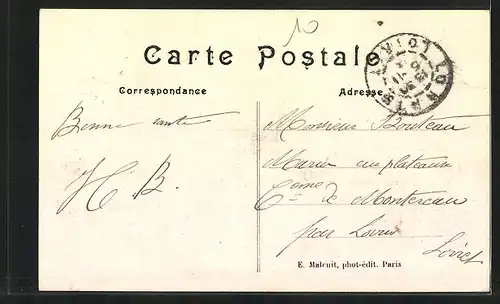 10
Carte Postale
Correspondance
Adresse
Bonne santé
H. B.
Monsieur Bouteau
au plateau
Cème de Montereau
par Lorris
Loiret
E. Maleuit, phot-édit. Paris